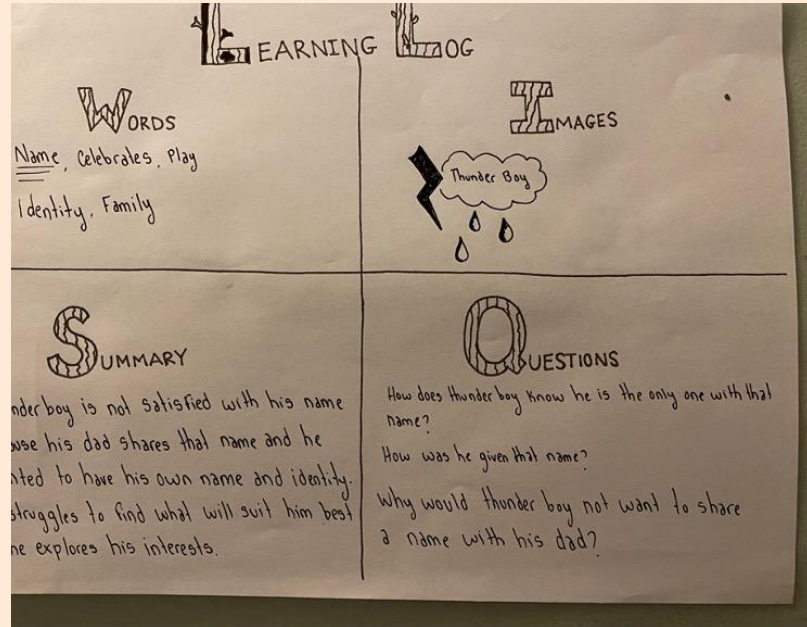 LEARNING LOG
WORDS
Name, Celebrates, Play
Identity, Family
IMAGES
Thunder Boy
SUMMARY
nder boy is not satisfied with his name
use his dad shares that name and he
nted to have his own name and identity.
struggles to find what will suit him best
he explores his interests.
QUESTIONS
How does thunder boy know he is the only one with that
name?
How was he given that name?
Why would thunder boy not want to share
a name with his dad?